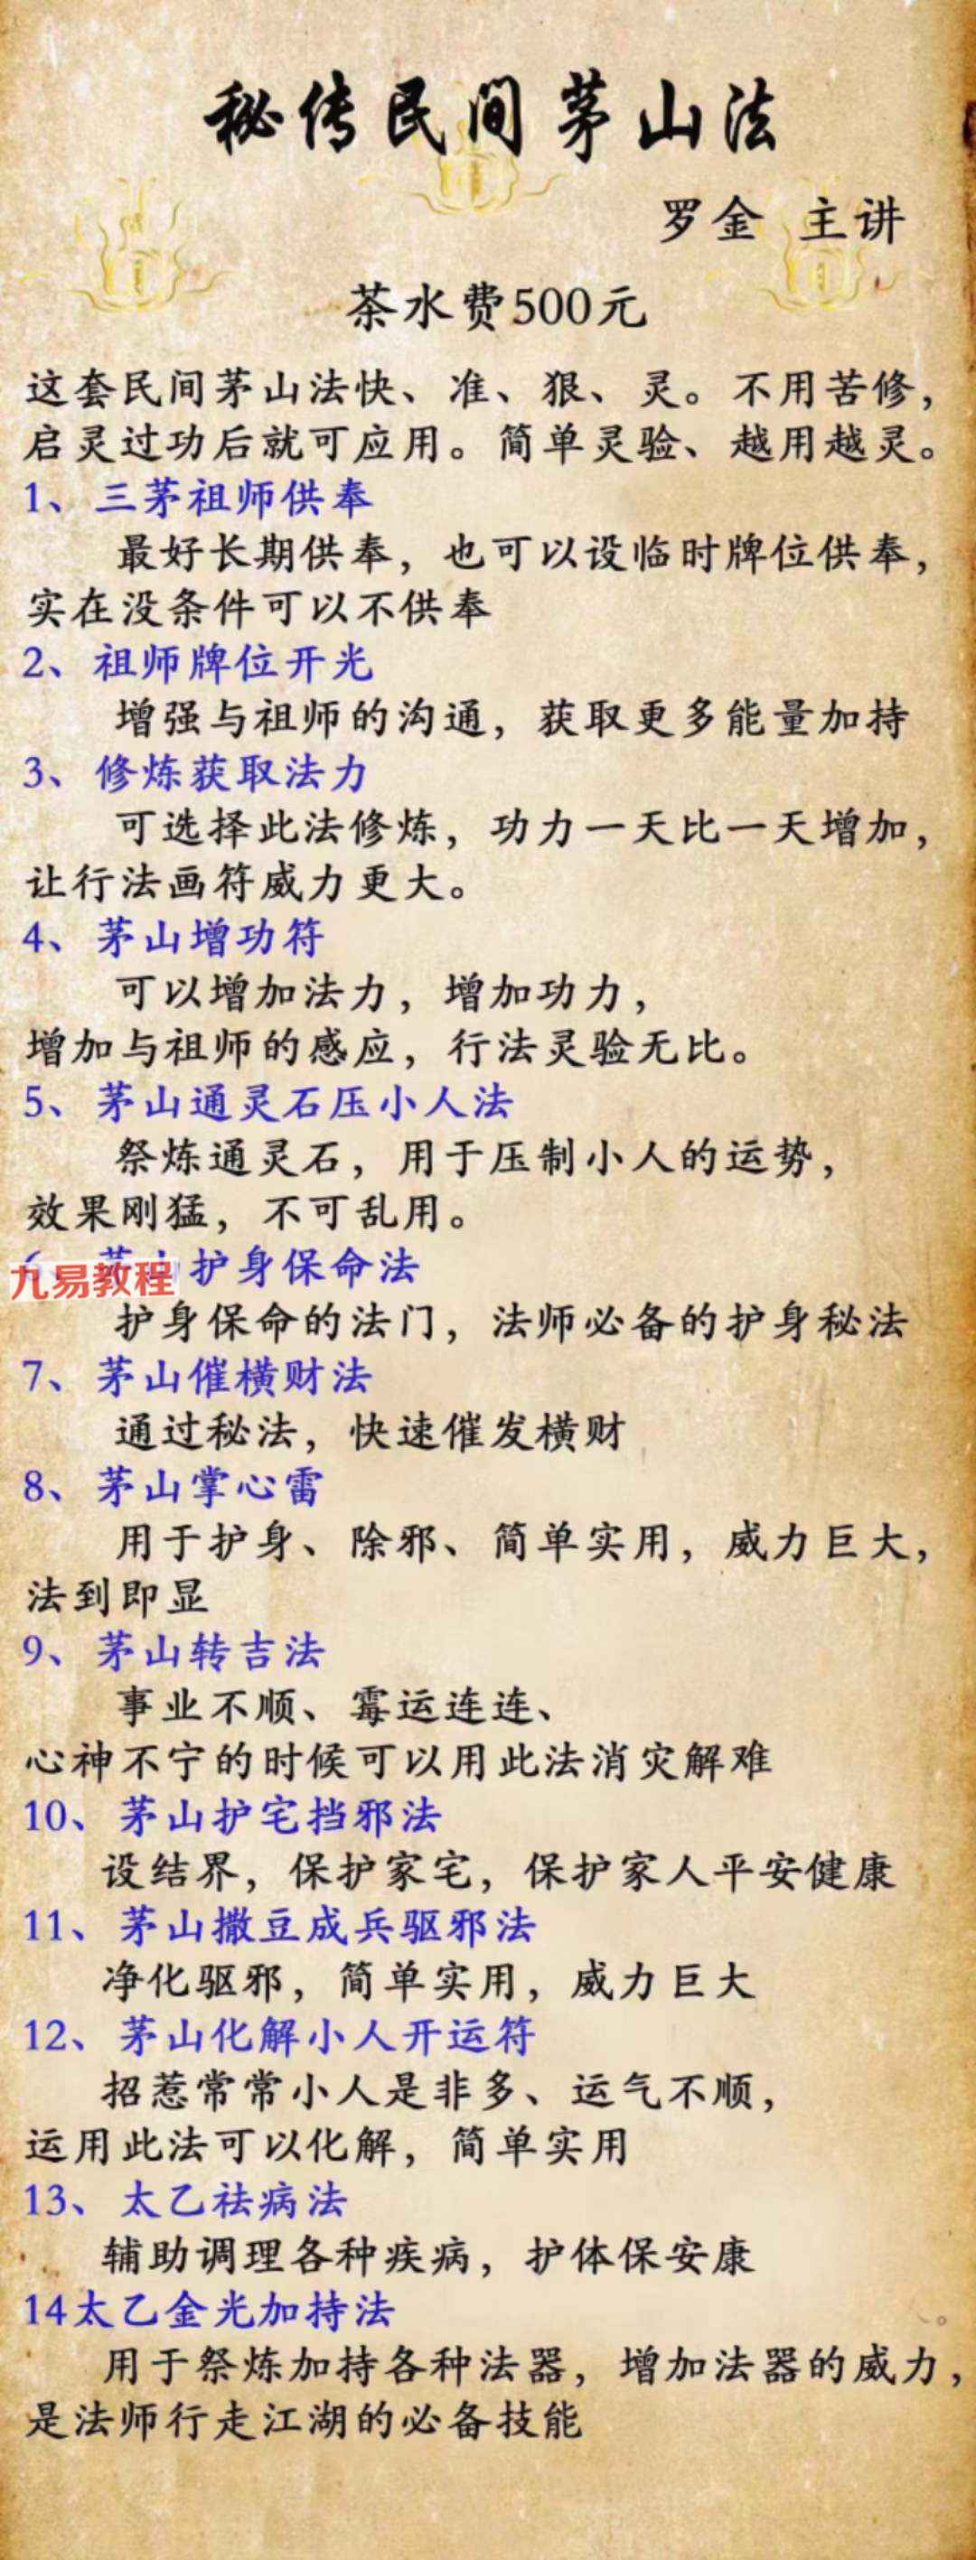 秘传民间茅山法
罗金 主讲
茶水费500元
这套民间茅山法快、准、狠、灵。不用苦修，
启灵过功后就可应用。简单灵验、越用越灵。
1、三茅祖师供奉
最好长期供奉，也可以设临时牌位供奉，
实在没条件可以不供奉
2、祖师牌位开光
增强与祖师的沟通，获取更多能量加持
3、修炼获取法力
可选择此法修炼，功力一天比一天增加，
让行法画符威力更大。
4、茅山增功符
可以增加法力，增加功力，
增加与祖师的感应，行法灵验无比。
5、茅山通灵石压小人法
祭炼通灵石，用于压制小人的运势，
效果刚猛，不可乱用。
6、茅山护身保命法
九易教程
护身保命的法门，法师必备的护身秘法
7、茅山催横财法
通过秘法，快速催发横财
8、茅山掌心雷
用于护身、除邪、简单实用，威力巨大，
法到即显
9、茅山转吉法
事业不顺、霉运连连、
心神不宁的时候可以用此法消灾解难
10、茅山护宅挡邪法
设结界，保护家宅，保护家人平安健康
11、茅山撒豆成兵驱邪法
净化驱邪，简单实用，威力巨大
12、茅山化解小人开运符
招惹常常小人是非多、运气不顺，
运用此法可以化解，简单实用
13、太乙祛病法
辅助调理各种疾病，护体保安康
14太乙金光加持法
用于祭炼加持各种法器，增加法器的威力，
是法师行走江湖的必备技能